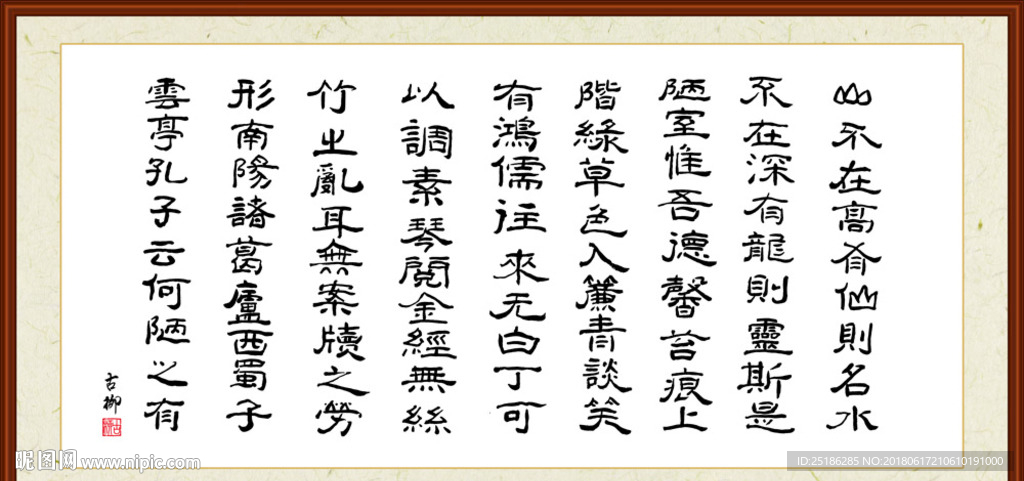 山不在高有仙則名水
不在深有龍則靈斯是
陋室惟吾德馨苔痕上
階綠草色入簾青談笑
有鴻儒往來无白丁可
以調素琴閱金經無絲
竹之亂耳無案牘之勞
形南陽諸葛廬西蜀子
雲亭孔子云何陋之有
古柳
昵图网 www.nipic.com
ID:25186285 NO:20180617210610191000